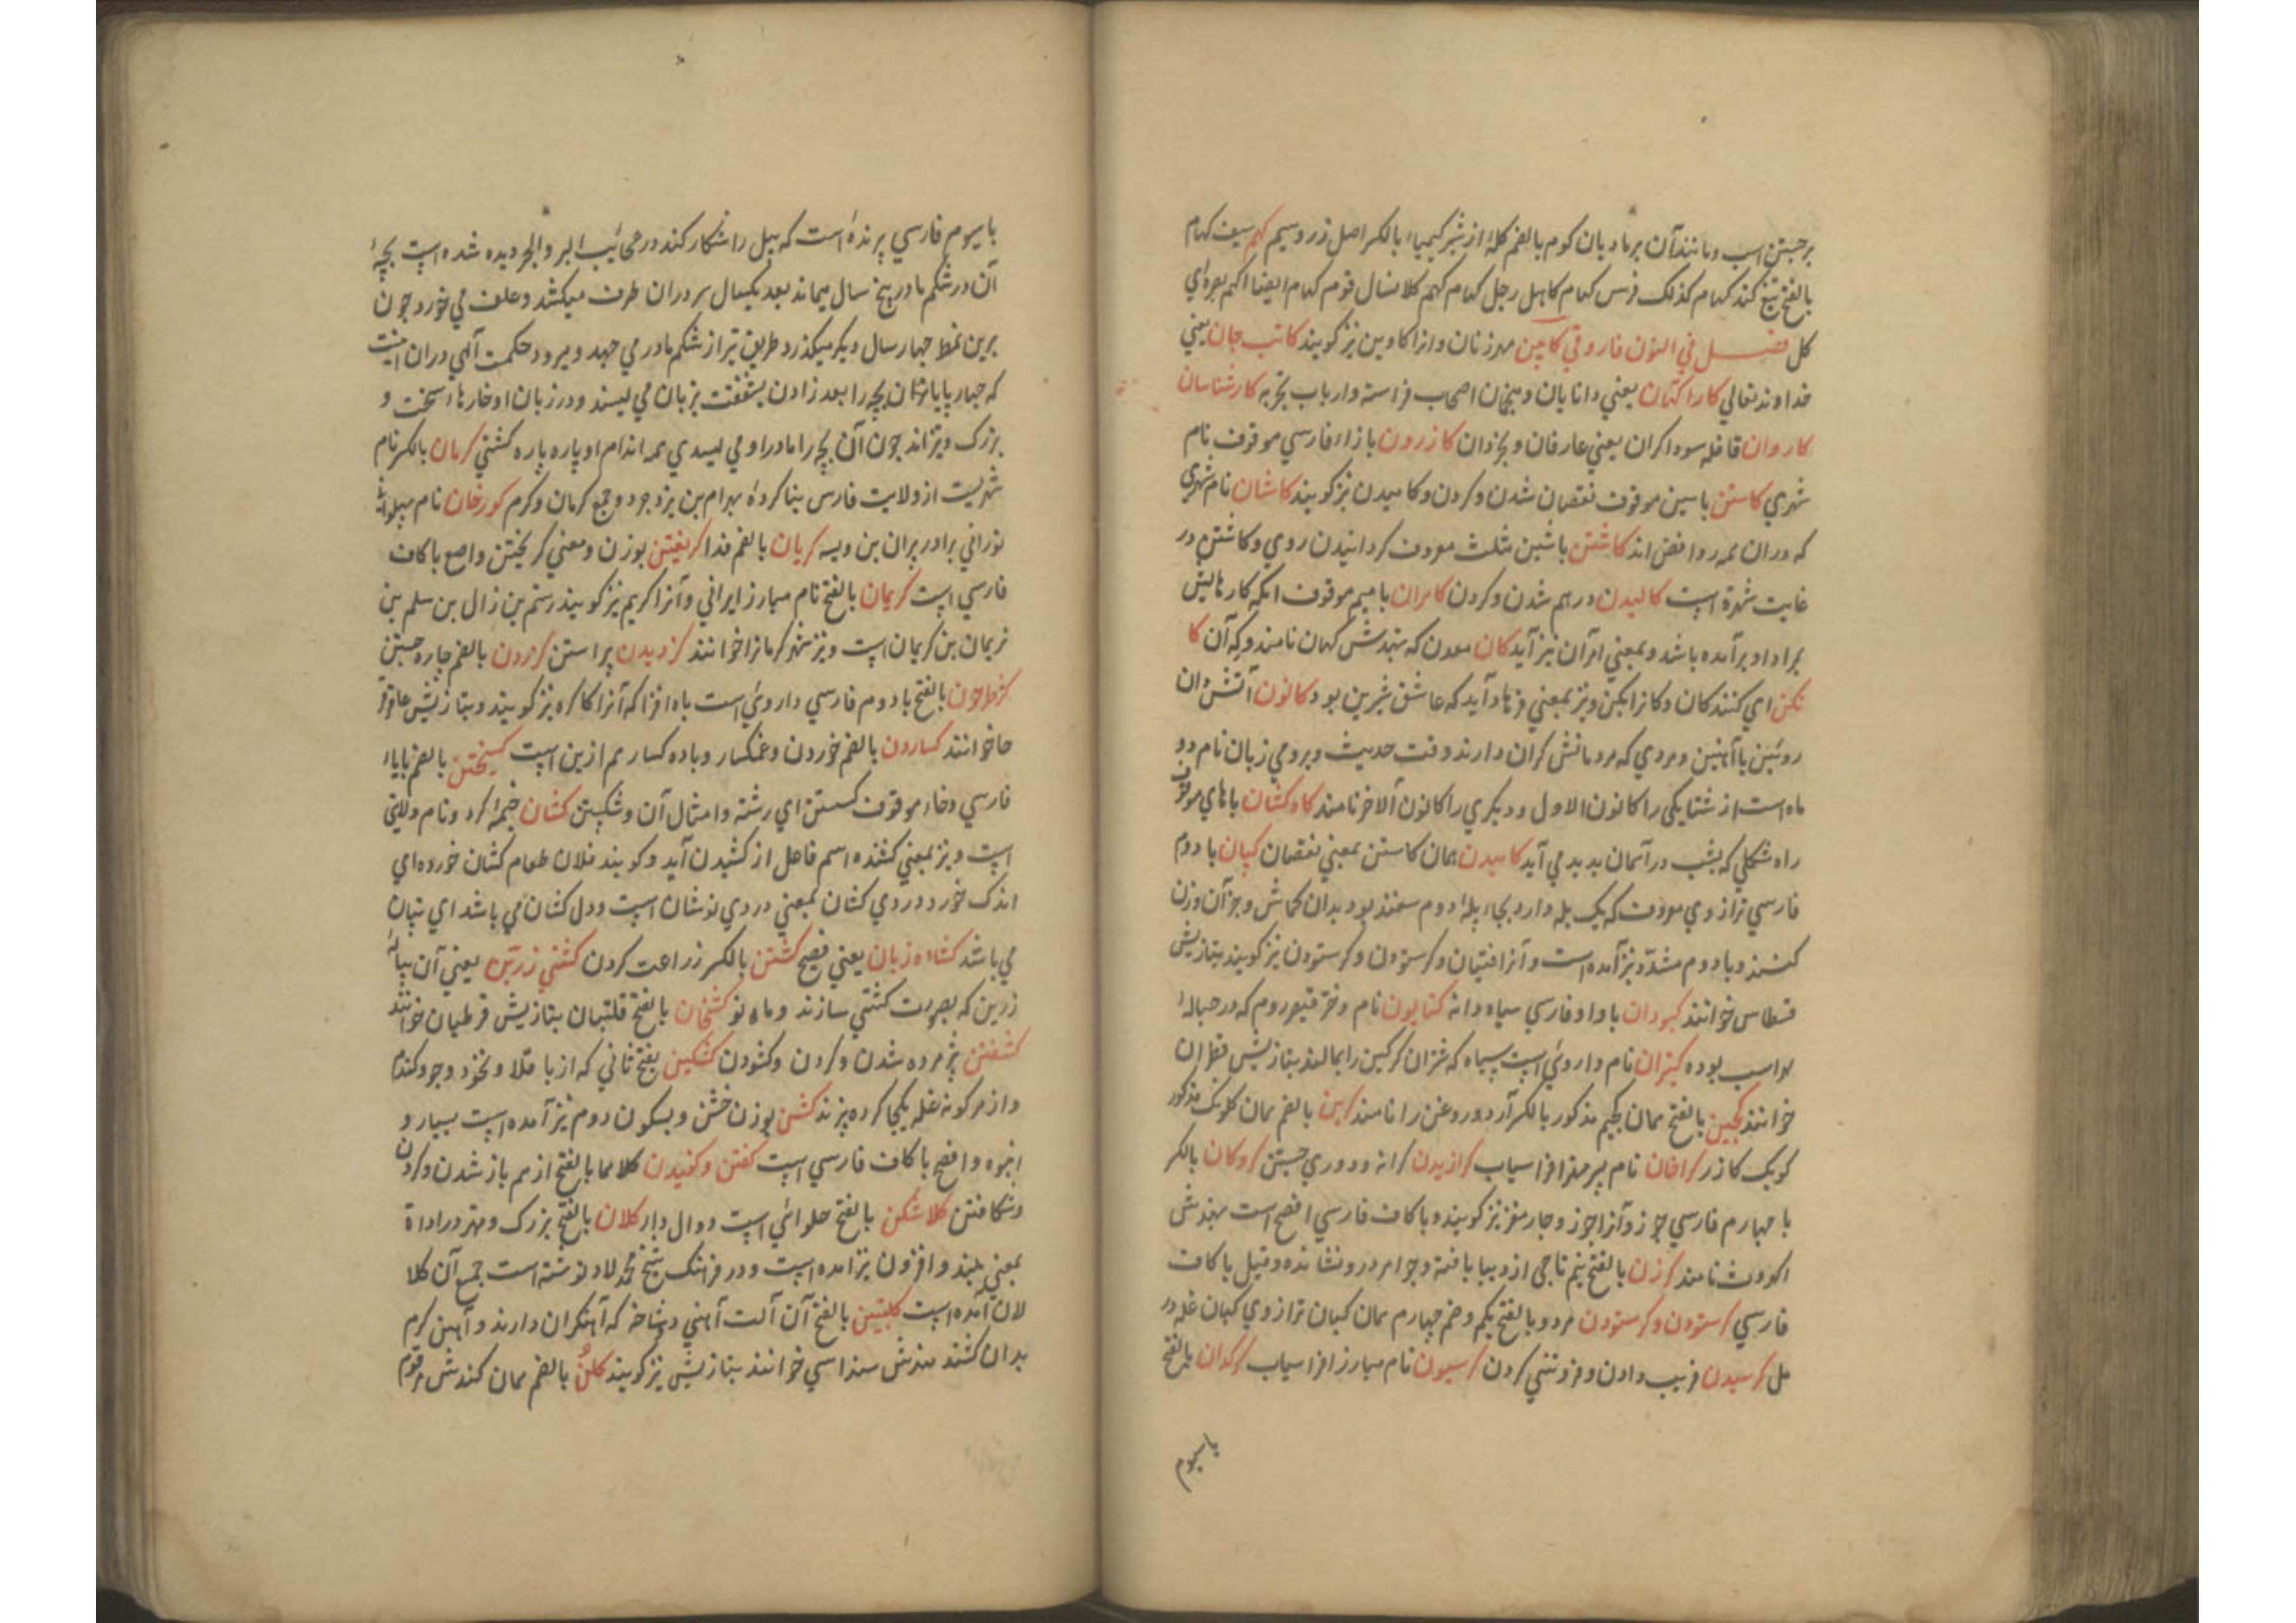 برجستن اسب و مانند آن بر مادیان کوم بالضم کلهٔ از شتر کیمیاء بالکسر اصل زر و سیم کهم سیف کهام
بالفتح تیغ کند کهام کذلک فرس کهام کاهل رجل کهام کهم کلامنسال قوم کهام ایضا اکهم بصره ای
کل فصل في النون فاروقي کابین مهر زنان و انرا کاوین نیز کویند کاتب جان یعني
خداوند تعالي کاراکنان یعني دانایان و اصحاب فراسة و ارباب تجربه کارشناسان
کاروان قافله سوداکران یعني عارفان و کازرون با زاء فارسي موقوف نام
شهري کاستن با سین موقوف نقصان شدن و کردن و کاهیدن نیز کویند کاشان نام شهري
که دران همه روافض اند کاشتن با شین مثلث معروف کردانیدن روي و کاشتن در
غایت شهرة است کالیدن درهم شدن و کردن کامران با میم موقوف انکه کارهایش
بمراد او برآمده باشد و بمعني امرآن نیز آید کان معدن که بهندش کهان نامند و که آن کا
نکن اي کننده کان و کانرا بکن و نیز بمعني فرهاد آید که عاشق شیرین بود کانون آتشدان
روئین یا آهنین و مردي که مردمانش کران دارند وقت حدیث و برومي زبان نام دو
ماه است از شتا یکی را کانون الاول و دیکري را کانون الآخر نامند کاه کشان با هاي موقوف
راه شکلي که بشب در آسمان پدید مي آید کاهیدن همان کاستن بمعني نقصان کپان با دوم
فارسي ترازوي معروف که یک پله دارد بجاء پلهٔ دوم سمند بود بدان قماش و جز آن وزن
کنند و با دوم مشدّد نیز آمده است و آنرا قپان و کرستون و کرستودن نیز کویند بتازیش
قسطاس خوانند کبودان با واو فارسي سیاه دانه کتایون نام دختر قیصر روم که در حبالهٔ
لهراسب بوده کتران نام داروئي است سیاه که شتران کرکین را بمالند بتازیش قطران
خوانند کجین بالفتح همان کجیم مذکور بالکسر آرد و روغن را نامند کرین بالضم همان کلونک مذکور
کوبک کازر کراخان نام پسر مهتر افراسیاب کرازیدن کرانه و دوري جستن کردکان بالکسر
با چهارم فارسي جوز و آنرا جوز و چارمغز نیز کویند و با کاف فارسي افصح است بهندش
اکروت نامند کرزن بالفتح نیم تاجی از دیبا بافته و جواهر درو نشانده و قیل با کاف
فارسي کرستودن و کرستون هر دو بالفتح یکم و ضم چهارم همان کپان ترازوي کپان غله در
هل کرسیدن فریب دادن و فروتني کردن کرسیون نام مبارز افراسیاب کرکدان بالفتح
با سیوم
با سیوم فارسي پرندهٔ است که پیل را شکار کند در عجائب البر و البحر دیده شده است بچهٔ
آن در شکم مادر پنج سال میماند بعد یکسال سر دران طرف میکشد و علف مي خورد چون
برین نمط چهار سال دیکر میکذرد طریق تیر از شکم مادر مي جهد و میرود حکمت آلهي دران اینست
که چهارپایا شان بچه را بعد زادن بشفقت بزبان مي لیسند و در زبان او خارها سخت و
بزرک و تیز اند چون آن بچه را مادر او مي لیسدي همه اندام او پاره پاره کشتي کرمان بالکسر نام
شهریست از ولایت فارس بنا کردهٔ بهرام بن یزدجرد و جمع کرمان و کرم کورخان نام پهلوانی
توراني برادر پیران بن ویسه کریان بالضم فدا کریغتن بوزن و معني کریختن و اصح با کاف
فارسي است کریمان بالفتح نام مبارز ایراني و آنرا کریم نیز کویند رستم بن زال بن سلم بن
نریمان بن کریمان است و نیز شهر کرمانرا خوانند کزدیدن پراستن کزردن بالضم چاره جستن
کژطرخون بالفتح با دوم فارسي داروئي است باه افزا که آنرا کاکره نیز کویند و بتازیش عاقر قر
حا خوانند کساردن بالضم خوردن و غمکسار و باده کسار هم ازین است کسیختن بالضم با یاء
فارسي و خاء موقوف کسستن اي رشته و امثال آن و شکستن کشان خیمهٔ کرد و نام ولایتي
است و نیز بمعني کشنده اسم فاعل از کشیدن آید و کویند فلان طعام کشان خورده اي
اندک خورد و دردي کشان بمعني دردي نوشان است و دل کشان مي باشد اي تپان
مي باشد کشاده زبان یعني فصیح کشتن بالکسر زراعت کردن کشتي زرین یعني آن پیالهٔ
زرین که بصورت کشتي سازند و ماه نو کشخان بالفتح قلتبان بتازیش قرطبان خوانند
کشفتن پژمرده شدن و کردن و کشودن کشکین بفتح ثاني که از باقلا و نخود و جو و کندم
و از هر کونه غله یکجا کرده پزند کشن بوزن خشن و بسکون دوم نیز آمده است بسیار و
انبوه و افصح با کاف فارسي است کفتن و کفیدن کلاهما بالفتح از هم باز شدن و کردن
و شکافتن کلاشکن بالفتح حلوائي است دوال دار کلان بالفتح بزرک و مهتر در اداة
بمعني بلند و افزون نیز آمده است و در فرهنک شیخ محمد لاد نوشته است جمع آن کلا
لان آمده است کلبتین بالفتح آن آلت آهني دوشاخه که آهنکران دارند و آهن کرم
بدان کشند هندش سنداسي خوانند بتازیش نیز کویند کلن بالضم همان کندش مرقوم